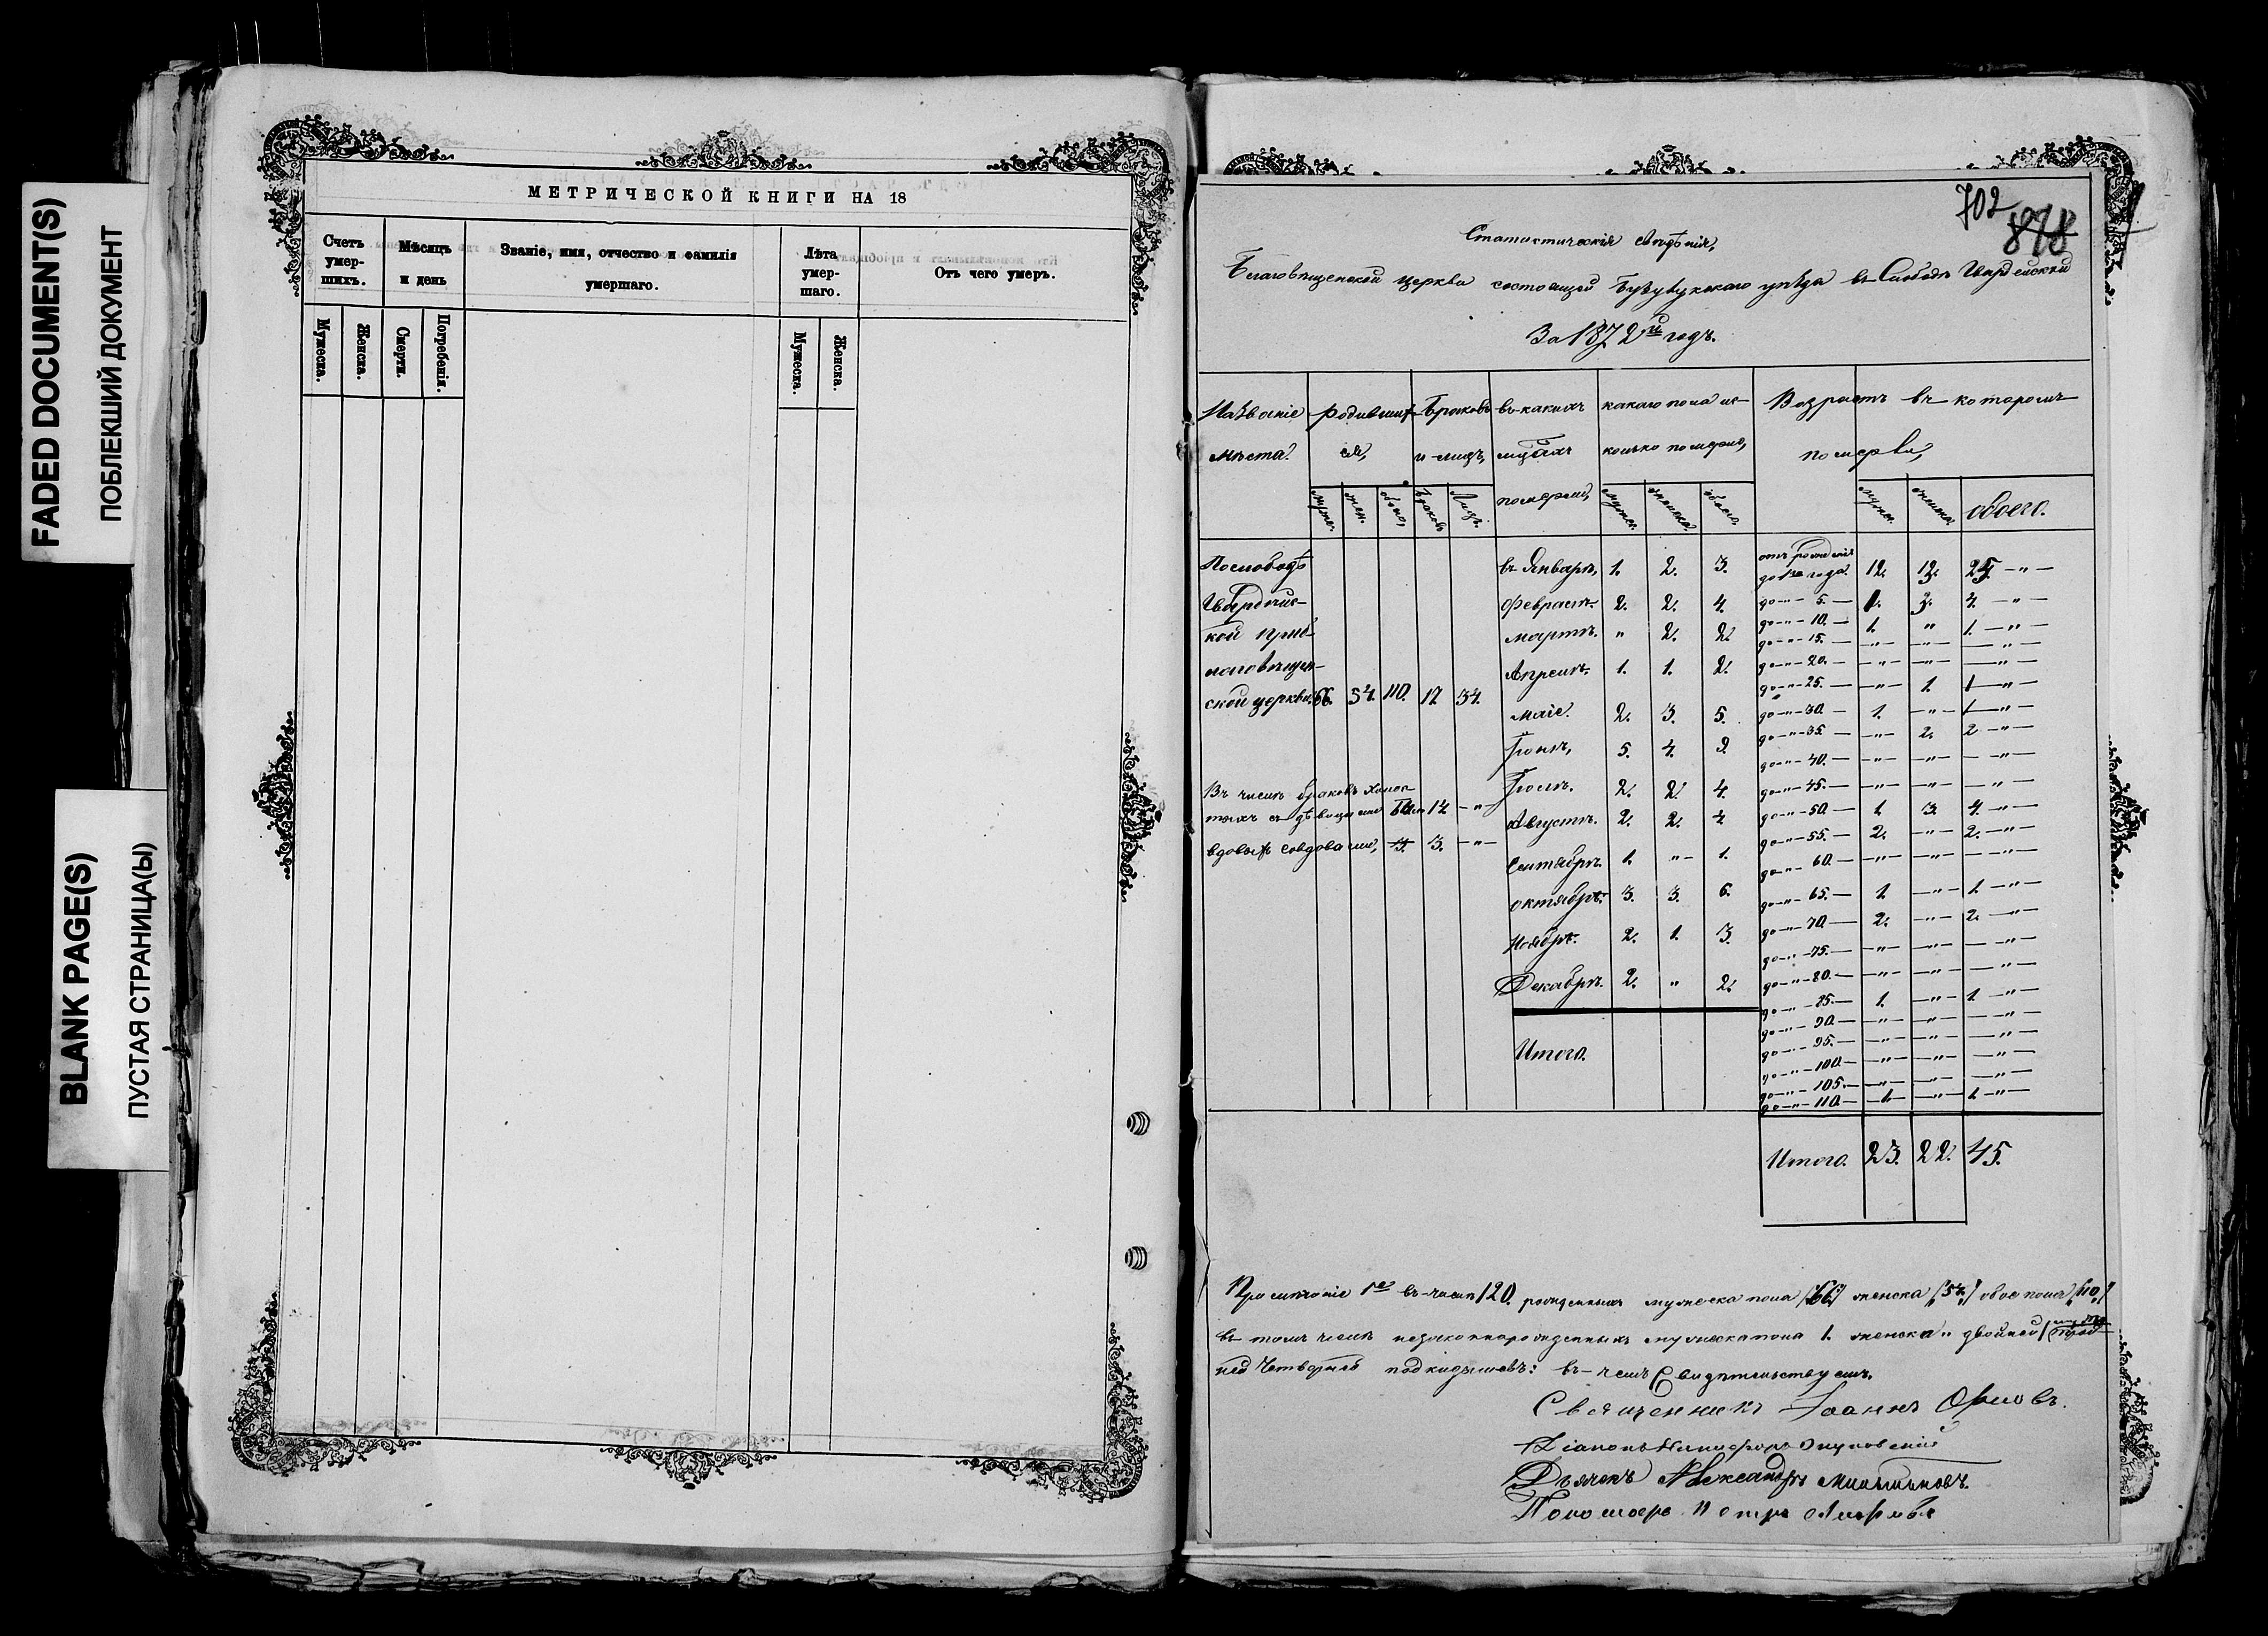 FADED DOCUMENT(S)
ПОБЛЕКШИЙ ДОКУМЕНТ
BLANK PAGE(S)
ПУСТАЯ СТРАНИЦА(Ы)
МЕТРИЧЕСКОЙ КНИГИ НА 18
Счетъ умер-шихъ.
Мѣсяцъ и день
Званіе, имя, отчество и фамилія умершаго.
Лѣта умер-шаго.
Отъ чего умеръ.
Мужеска.
Женска.
Смерти.
Погребенія.
Мужеска.
Женска.
702
878
Статистическія свѣдѣнія,
Благовѣщенской церкви состоящей Бузулукскаго уѣзда въ Слободѣ Гвардейской
За 1872й годъ.
Названіе мѣста.
родивших ся,
Браковъ и лицъ,
въ какихъ мѣсяцахъ померло,
какого пола и сколько померло,
Возрастъ въ которомъ померли,
муже.
жен.
обоего,
Браковъ
Лицъ.
мужес.
женска.
обоего.
мужес.
женска.
обоего.
По слободѣ
Гвардейс-
кой при Б-
лаговѣщен-
ской церкви. 66. 54. 110. 17 34.
Въ числѣ браковъ холос-
тыхъ съ дѣвицами 14 - " -
вдовыхъ со вдовами, 3. 3. - " -
въ Январѣ, 1. 2. 3.
Февралѣ. 2. 2. 4.
Мартѣ. " 2. 2.
Апрелѣ. 1. 1. 2.
Маіе. 2. 3. 5.
Іюнѣ, 5. 4. 9.
Іюлѣ. 2. 2. 4.
Августѣ. 2. 2. 4
Сентябрѣ. 1. " - 1.
Октябрѣ. 3. 3. 6.
Ноябрѣ. 2. 1. 3.
Декабрѣ. 2. " 2.
Итого.
отъ рожденія
до 1го года. 12. 13. 25. - " -
до - " - 5. - 1. 3. 4. - " -
до - " - 10. - 1. " 1. - " -
до - " - 15. - - " - - " - - " -
до - " - 20. - - " - - " - - " -
до - " - 25. - - " - 1. 1 - " -
до - " - 30. - 1. - " - 1 - " -
до - " - 35 - - " - 2. 2 - " -
до - " - 40. - - " - - " - - " -
до - " - 45. - - " - - " - - "
до - " - 50. - 1. 3. 4. - " -
до - " - 55. - 2. - " - 2. - " -
до - " - 60. - - " - - " - - " -
до - " - 65. - 1 - " - 1. - " -
до - " - 70. - 2. - " - 2. - " -
до - " - 75. - - " - - " - - " -
до - " - 80. - - " - - " - - " -
до - " - 85. - 1. - " - 1. - " -
до - " - 90. - - " - - " - - " -
до - " - 95. - - " - - " - - " -
до - " - 100. - - " - - " - - " -
до - " - 105. - - " - - " - - " -
до - " - 110. - 1. - " - 1. - " -
Итого. 23. 22. 45.
Примѣчаніе 1е въ числѣ 120. рожденныхъ мужеска пола /66/ женска /54./ обое пола /110./
въ томъ числѣ незаконнорожденныхъ мужеска пола 1. женска " двойней
ней Четверней подкидышевъ: въ чемъ Свидѣтельствуемъ.
Священникъ Іоаннъ Орловъ.
Діаконъ Никифоръ
Дьячекъ Александръ
Пономарь Петръ